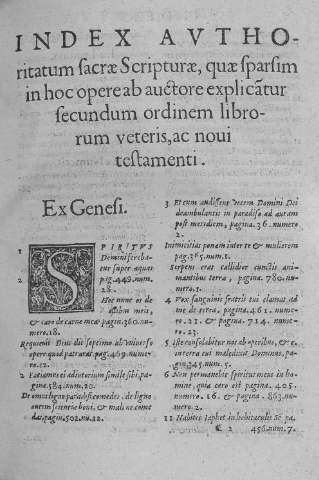 INDEX AVTHO-
ritatum sacræ Scripturæ, quæ sparsim
in hoc opere ab auctore explicãtur
secundum ordinem libro-
rum veteris, ac noui
testamenti.
Ex Genesi.
1 SPIRITVS
Domini ferebatur super aquas
pag. 449. num.
2 28.
Hoc nunc os de
ossibus meis,
& caro de carne mea pagin. 360. nu-
mero. 18.
Requieuit Deus die septimo ab vniuerso
opere quod patrarat pag. 469. nume-
ro. 12.
2 Faciamus ei adiutorium simile sibi, pa-
gina. 584. num. 20.
De omni ligno paradisi comedes, de ligno
autem scientiæ boni, & mali ne come
das, pagin. 502. nu. 12.
3 Et cum audissent vocem Domini Dei
deambulantis in paradiso ad auram
post meridiem, pagina. 36. numero
2.
Inimicitias ponam inter te & mulierem
pag. 365. num. 1.
Serpens erat callidior cunctis ani-
mantibus terræ, pagina. 780. nu-
mero. 1.
4 Vox sanguinis fratris tui clamat ad
me de terra, pagina. 461. nume-
ro. 11. & pagina. 714. nume-
ro. 23.
5 Iste consolabitur nos ab operibus, & c.
in terra cui maledixit Dominus, pa-
gin. 345. num. 5.
6 Non permanebit spiritus meus in ho-
mine, quia caro est pagina. 405.
numero. 16. & pagina. 863. nu-
mero. 2.
11 Habitet Iaphet in habitaculis Sē pa.
2 456. num. 7.